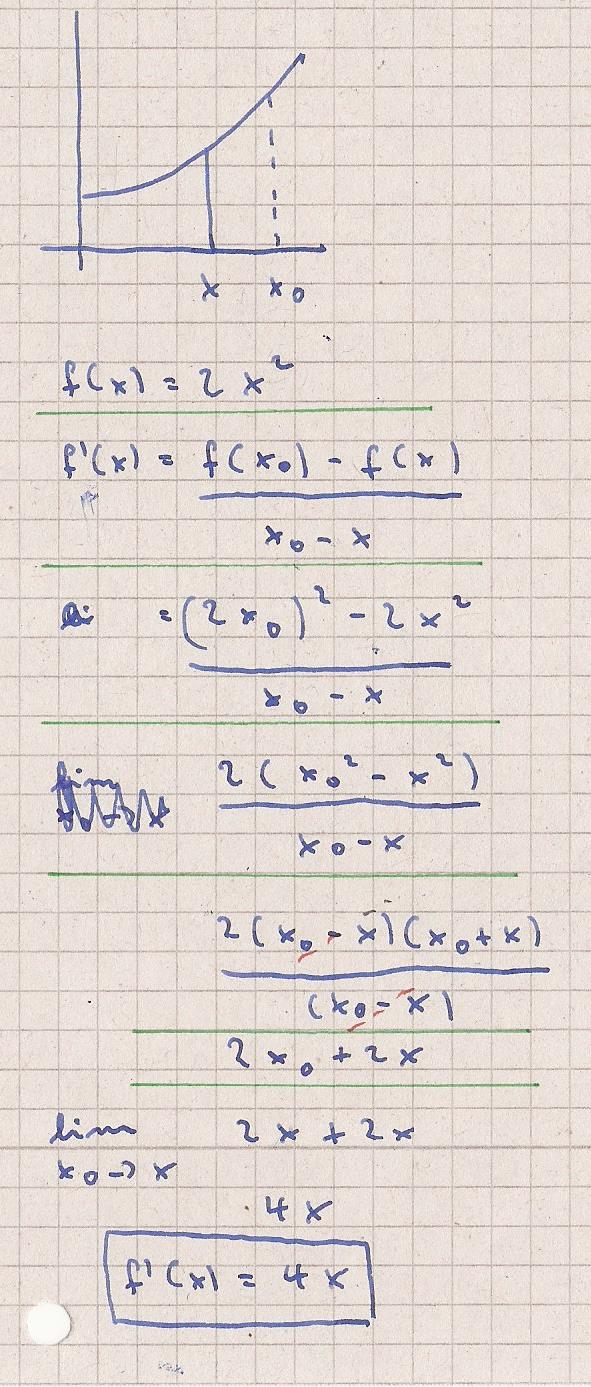 x x₀
f(x) = 2 x²
f'(x) = f(x₀) - f(x)
x₀ - x
= (2 x₀)² - 2 x²
x₀ - x
2 ( x₀² - x² )
x₀ - x
2 ( x₀ - x ) ( x₀ + x )
( x₀ - x )
2 x₀ + 2 x
lim 2 x + 2 x
x₀ → x
4 x
f'(x) = 4 x